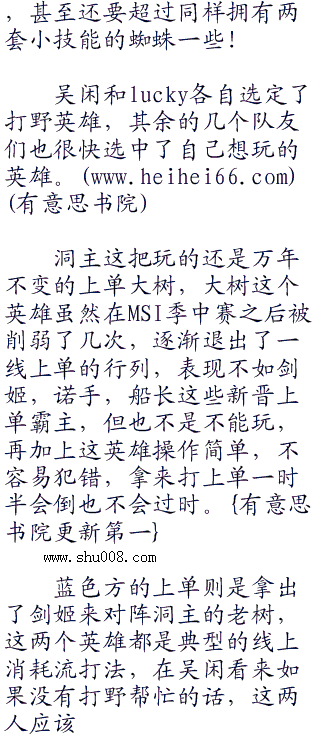 ，甚至还要超过同样拥有两
套小技能的蜘蛛一些！
吴闲和lucky各自选定了
打野英雄，其余的几个队友
们也很快选中了自己想玩的
英雄。(www.heihei66.com)
(有意思书院)
洞主这把玩的还是万年
不变的上单大树，大树这个
英雄虽然在MSI季中赛之后被
削弱了几次，逐渐退出了一
线上单的行列，表现不如剑
姬，诺手，船长这些新晋上
单霸主，但也不是不能玩，
再加上这英雄操作简单，不
容易犯错，拿来打上单一时
半会倒也不会过时。{有意思
书院更新第一}
www.shu008.com
蓝色方的上单则是拿出
了剑姬来对阵洞主的老树，
这两个英雄都是典型的线上
消耗流打法，在吴闲看来如
果没有打野帮忙的话，这两
人应该